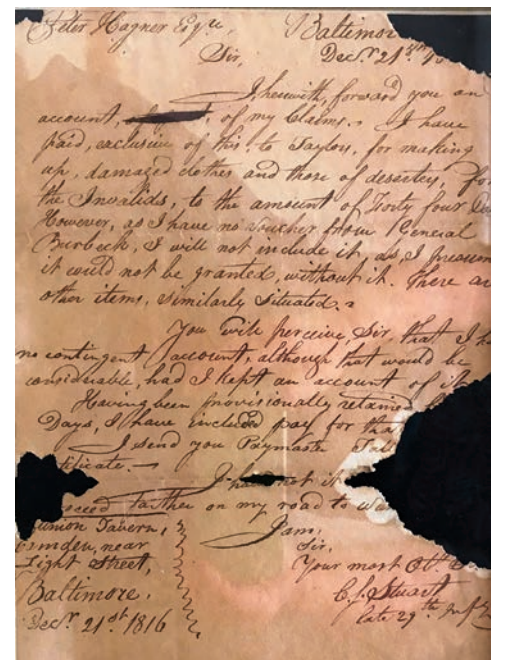 Peter Hagner Esqre, Baltimor
Sir, Decr. 21st
I, herewith, forward you an
account, of my Claims. I have
paid, exclusive of this, to Taylors, for making
up, damaged clothes and those of deserters, fo
the Invalids, to the amount of Forty four Do
However, as I have no voucher from General
Burbeck, I will not include it, as, I presum
it would not be granted, without it. There ar
other items, similarly situated.
You will perceive, Sir, that I h
no contingent account, although that would be
considerable, had I kept an account of it
Having been provisionally retaine
Days, I have included pay for tha
I send you Paymaster
tificate.
I had not it
ceed farther on my road to Wa
union Tavern, I am,
mden, near Sir,
Light Street, Your most Obt
Baltimore, C. J. Stuart
Decr. 21st 1816 late 29th Inf